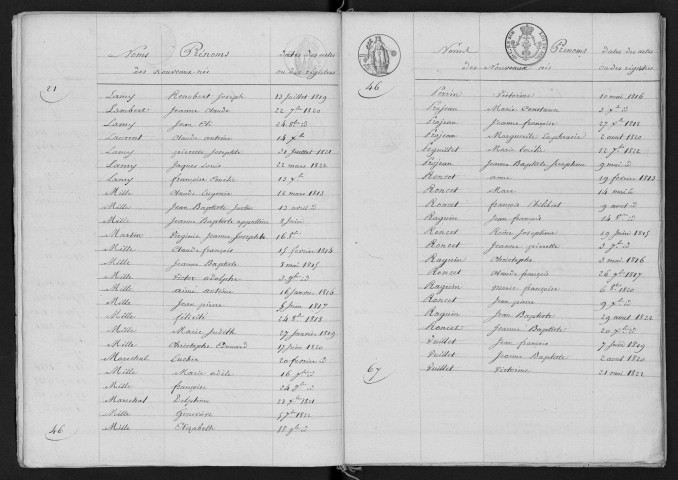 Noms Prénoms Dates des actes
des Nouveaux nés ou des registres
21
Lamy Rambert Joseph 13 juillet 1819
Lambert Jeanne Claude 22 7bre 1820
Lamy Jean 24 8bre d
Laurent Claude antoine 14 xbre
Lamy pierrette josephte 31 juillet 1821
Lamy jaques Louis 22 mars 1822
Lamy françoise 13 xbre
Mille Claude Eugenie 12 mars 1813
Mille Jean Baptiste 13 avril d
Mille Jeanne Baptiste appolline 8 juin
Martin Virginie Jeanne Josephte 16 8bre
Mille Claude françois 15 février 1814
Mille Jeanne Baptiste 3 mai 1815
Mille Victor adolphe 3 9bre d
Mille aimé antoine 16 janvier 1816
Mille Jean pierre 5 juin 1817
Mille félicité 24 8bre 1818
Mille Marie Judith 27 janvier 1819
Mille Christophe Edouard 17 juin 1820
Marechal Lucien 20 février d
Mille Marie adèle 16 9bre d
Mille françoise 24 9bre d
Marechal Delphine 23 xbre 1821
Mille Genevieve 5 7bre 1822
46
Mille Elizabeth 18 9bre d
Noms Prénoms Dates des actes
des Nouveaux nés ou des registres
46
Perrin Victorine 10 mai 1816
Prejean Marie Constance 2 xbre d
Prejean Jeanne françoise 27 xbre 1818
Prejean Marguerite Euphrasie 2 aout 1820
Marie Cecile 12 7bre 1822
Prejean Jeanne Baptiste Josephine 9 mai d
Roncet anne 19 février 1813
Roncet Marc 14 mai d
Roncet françois Philibert 9 avril d
Raguin Jean françois 14 8bre d
Roncet Reine Josephine 19 juin 1815
Roncet Jeanne pierrette 3 9bre d
Raguin Christophe 3 mai 1816
Roncet Claude françois 26 9bre 1817
Raguin Marie françoise 6 8bre 1820
Roncet Jean pierre 9 xbre d
Raguin Jean Baptiste 29 aout 1822
Roncet Jeanne Baptiste 20 xbre d
Vuillet Jean françois 7 juin 1819
Vuillet Jeanne Baptiste 2 aout 1820
67
Vuillet Victorine 21 mai 1822